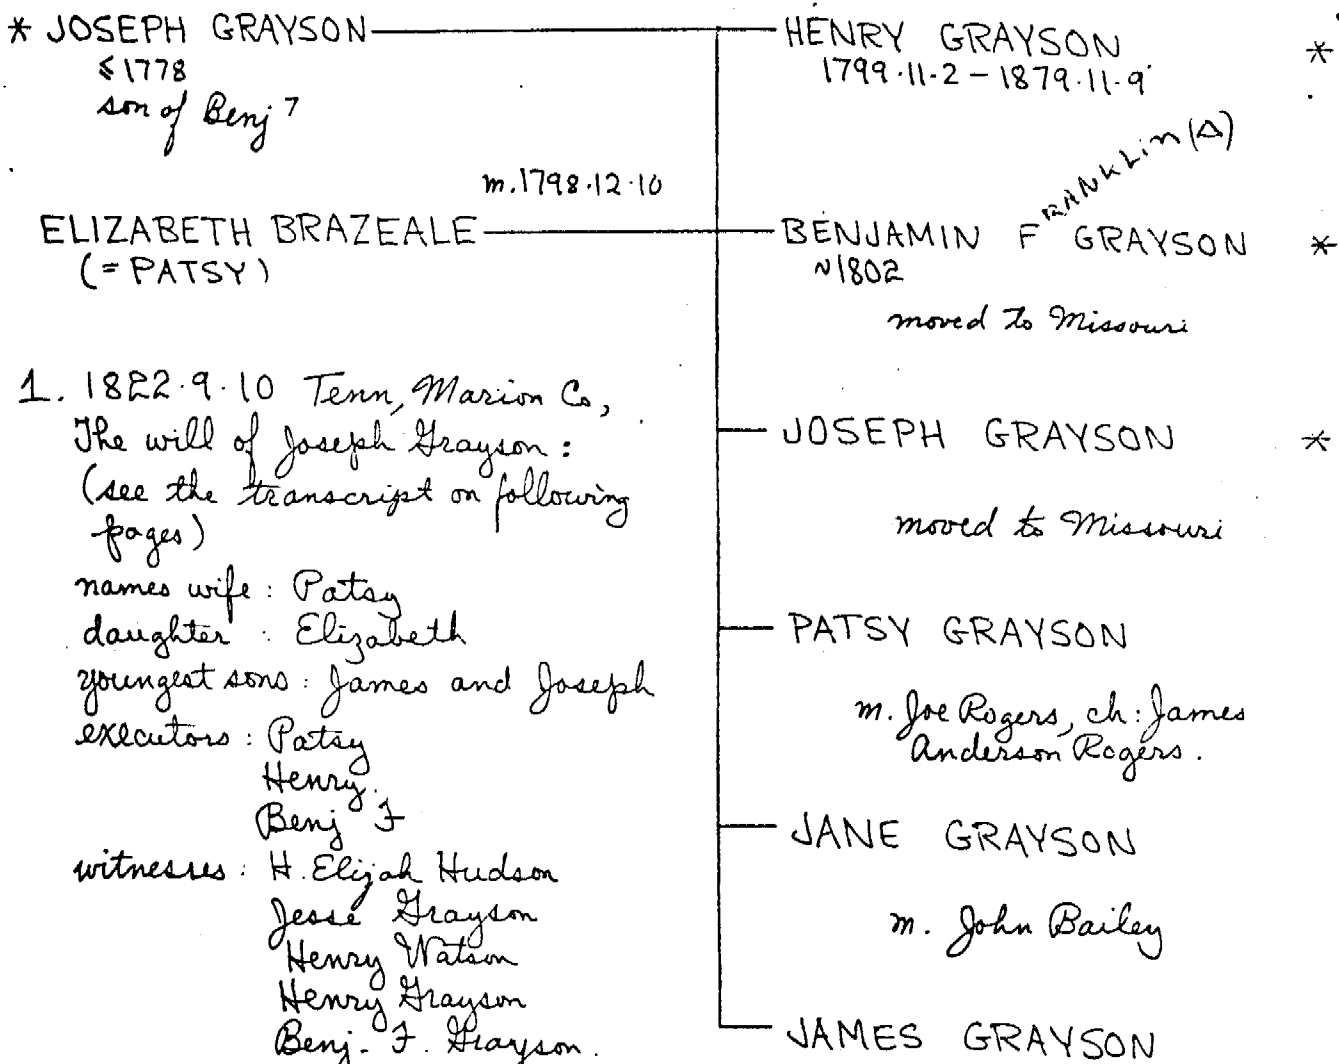 * JOSEPH GRAYSON
≤1778
son of Benj 7
m.1798.12.10
ELIZABETH BRAZEALE
(=PATSY)
1. 1822.9.10 Tenn, Marion Co,
The will of Joseph Grayson:
(see the transcript on following
pages)
names wife: Patsy
daughter: Elizabeth
youngest sons: James and Joseph
executors: Patsy
Henry
Benj F
witnesses: H. Elijah Hudson
Jesse Grayson
Henry Watson
Henry Grayson
Benj. F. Grayson.
HENRY GRAYSON *
1799.11.2 - 1879.11.9
BENJAMIN FRANKLIN(Δ) GRAYSON *
~1802
moved to Missouri
JOSEPH GRAYSON *
moved to Missouri
PATSY GRAYSON
m. Joe Rogers, ch: James
Anderson Rogers.
JANE GRAYSON
m. John Bailey
JAMES GRAYSON